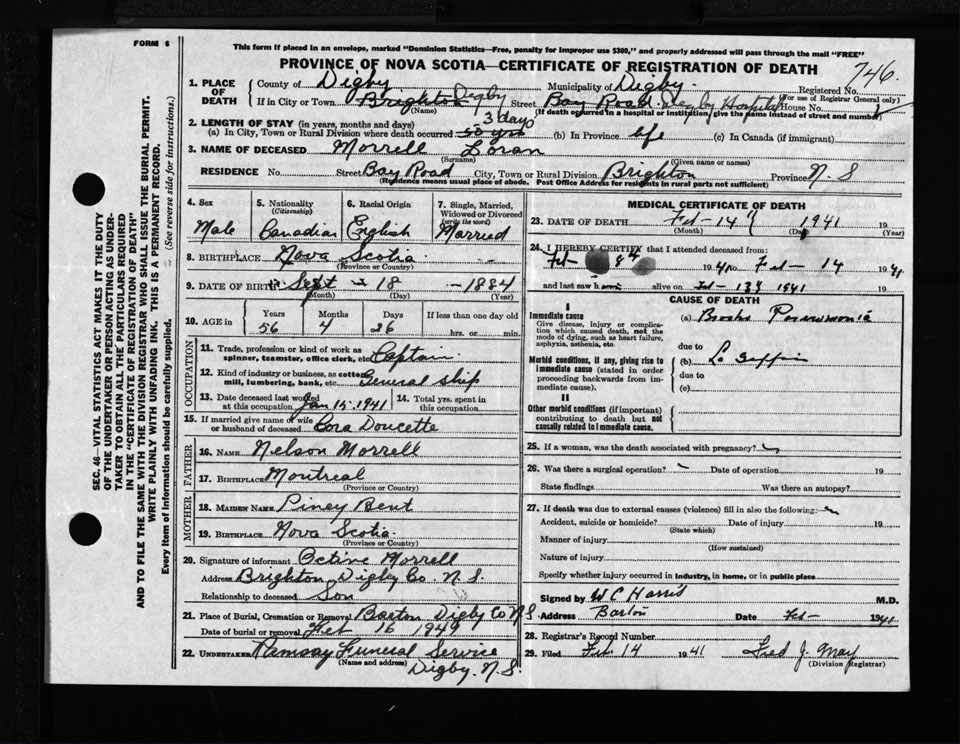 FORM 6
This form if placed in an envelope, marked "Dominion Statistics—Free, penalty for improper use $300," and properly addressed will pass through the mail "FREE"
PROVINCE OF NOVA SCOTIA—CERTIFICATE OF REGISTRATION OF DEATH
746.
SEC. 46—VITAL STATISTICS ACT MAKES IT THE DUTY
OF THE UNDERTAKER OR PERSON ACTING AS UNDER-
TAKER TO OBTAIN ALL THE PARTICULARS REQUIRED
IN THE "CERTIFICATE OF REGISTRATION OF DEATH"
AND TO FILE THE SAME WITH THE DIVISION REGISTRAR WHO SHALL ISSUE THE BURIAL PERMIT.
WRITE PLAINLY WITH UNFADING INK. THIS IS A PERMANENT RECORD.
Every item of information should be carefully supplied. (See reverse side for instructions.)
1. PLACE OF DEATH County of Digby Municipality of Digby. Registered No.
(For use of Registrar General only)
If in City or Town Brighton Digby Street Bay Road. Digby Hospital House No.
(Name) (If death occurred in a hospital or institution, give the name instead of street and number)
2. LENGTH OF STAY (in years, months and days) 3 days
(a) In City, Town or Rural Division where death occurred 50 yrs (b) In Province life (c) In Canada (if immigrant)
3. NAME OF DECEASED Morrell Loran
(Surname) (Given name or names)
RESIDENCE No. Street Bay Road City, Town or Rural Division Brighton Province N.S
(Residence means usual place of abode. Post Office Address for residents in rural parts not sufficient)
4. Sex Male
5. Nationality (Citizenship) Canadian
6. Racial Origin English
7. Single, Married, Widowed or Divorced (write the word) Married
8. BIRTHPLACE Nova Scotia
(Province or Country)
9. DATE OF BIRTH Sept - 18 - 1884
(Month) (Day) (Year)
10. AGE in Years 56 Months 4 Days 26 If less than one day old hrs. or min.
OCCUPATION
11. Trade, profession or kind of work as spinner, teamster, office clerk, etc. Captain
12. Kind of industry or business, as cotton mill, lumbering, bank, etc. General ship
13. Date deceased last worked at this occupation. Jan 15. 1941
14. Total yrs. spent in this occupation.
15. If married give name of wife or husband of deceased Cora Doucette
FATHER
16. NAME Nelson Morrell
17. BIRTHPLACE Montreal
(Province or Country)
MOTHER
18. MAIDEN NAME Piney Bent
19. BIRTHPLACE Nova Scotia
(Province or Country)
20. Signature of informant Octive Morrell
Address Brighton Digby Co. N.S.
Relationship to deceased Son
21. Place of Burial, Cremation or Removal Barton Digby Co N.S
Date of burial or removal Feb 16 1941
22. UNDERTAKER Ramsay Funeral Service
(Name and address) Digby. N.S.
MEDICAL CERTIFICATE OF DEATH
23. DATE OF DEATH Feb - 14 1941 19
(Month) (Day) (Year)
24. I HEREBY CERTIFY that I attended deceased from:
Feb 1941 to Feb - 14 1941
and last saw h alive on Feb - 13 1941
CAUSE OF DEATH
I
Immediate cause
Give disease, injury or complication which caused death, not the mode of dying, such as heart failure, asphyxia, asthenia, etc.
(a) Broncho Pneumonia
due to
Morbid conditions, if any, giving rise to immediate cause (stated in order proceeding backwards from immediate cause).
(b) La Grippe
due to
(c)
II
Other morbid conditions (if important) contributing to death but not causally related to immediate cause.
25. If a woman, was the death associated with pregnancy?
26. Was there a surgical operation? Date of operation 19
State findings Was there an autopsy?
27. If death was due to external causes (violence) fill in also the following:
Accident, suicide or homicide? Date of injury 19
(State which)
Manner of injury
(How sustained)
Nature of injury
Specify whether injury occurred in industry, in home, or in public place
Signed by W C Harris M.D.
Address Barton Date Feb - 1941
28. Registrar's Record Number
29. Filed Feb 14 1941 Fred J. May
(Division Registrar)